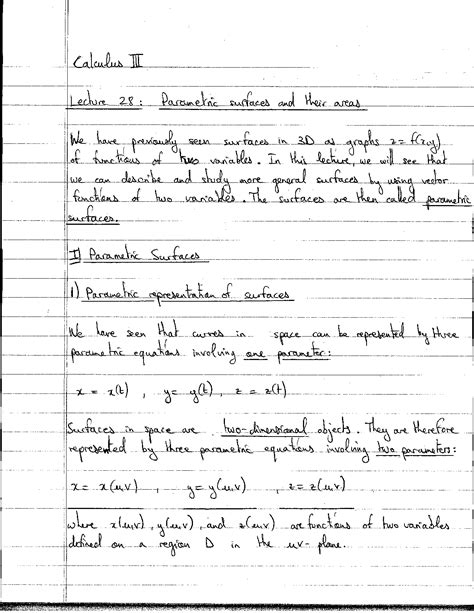 Calculus III
Lecture 28: Parametric surfaces and their areas
We have previously seen surfaces in 3D as graphs z = f(x,y)
of functions of two variables. In this lecture, we will see that
we can describe and study more general surfaces by using vector
functions of two variables. The surfaces are then called parametric
surfaces.
I) Parametric Surfaces
1) Parametric representation of surfaces
We have seen that curves in space can be represented by three
parametric equations involving one parameter:
x = x(t), y = y(t), z = z(t)
Surfaces in space are two-dimensional objects. They are therefore
represented by three parametric equations involving two parameters:
x = x(u,v), y = y(u,v), z = z(u,v)
where x(u,v), y(u,v), and z(u,v) are functions of two variables
defined on a region D in the uv-plane.